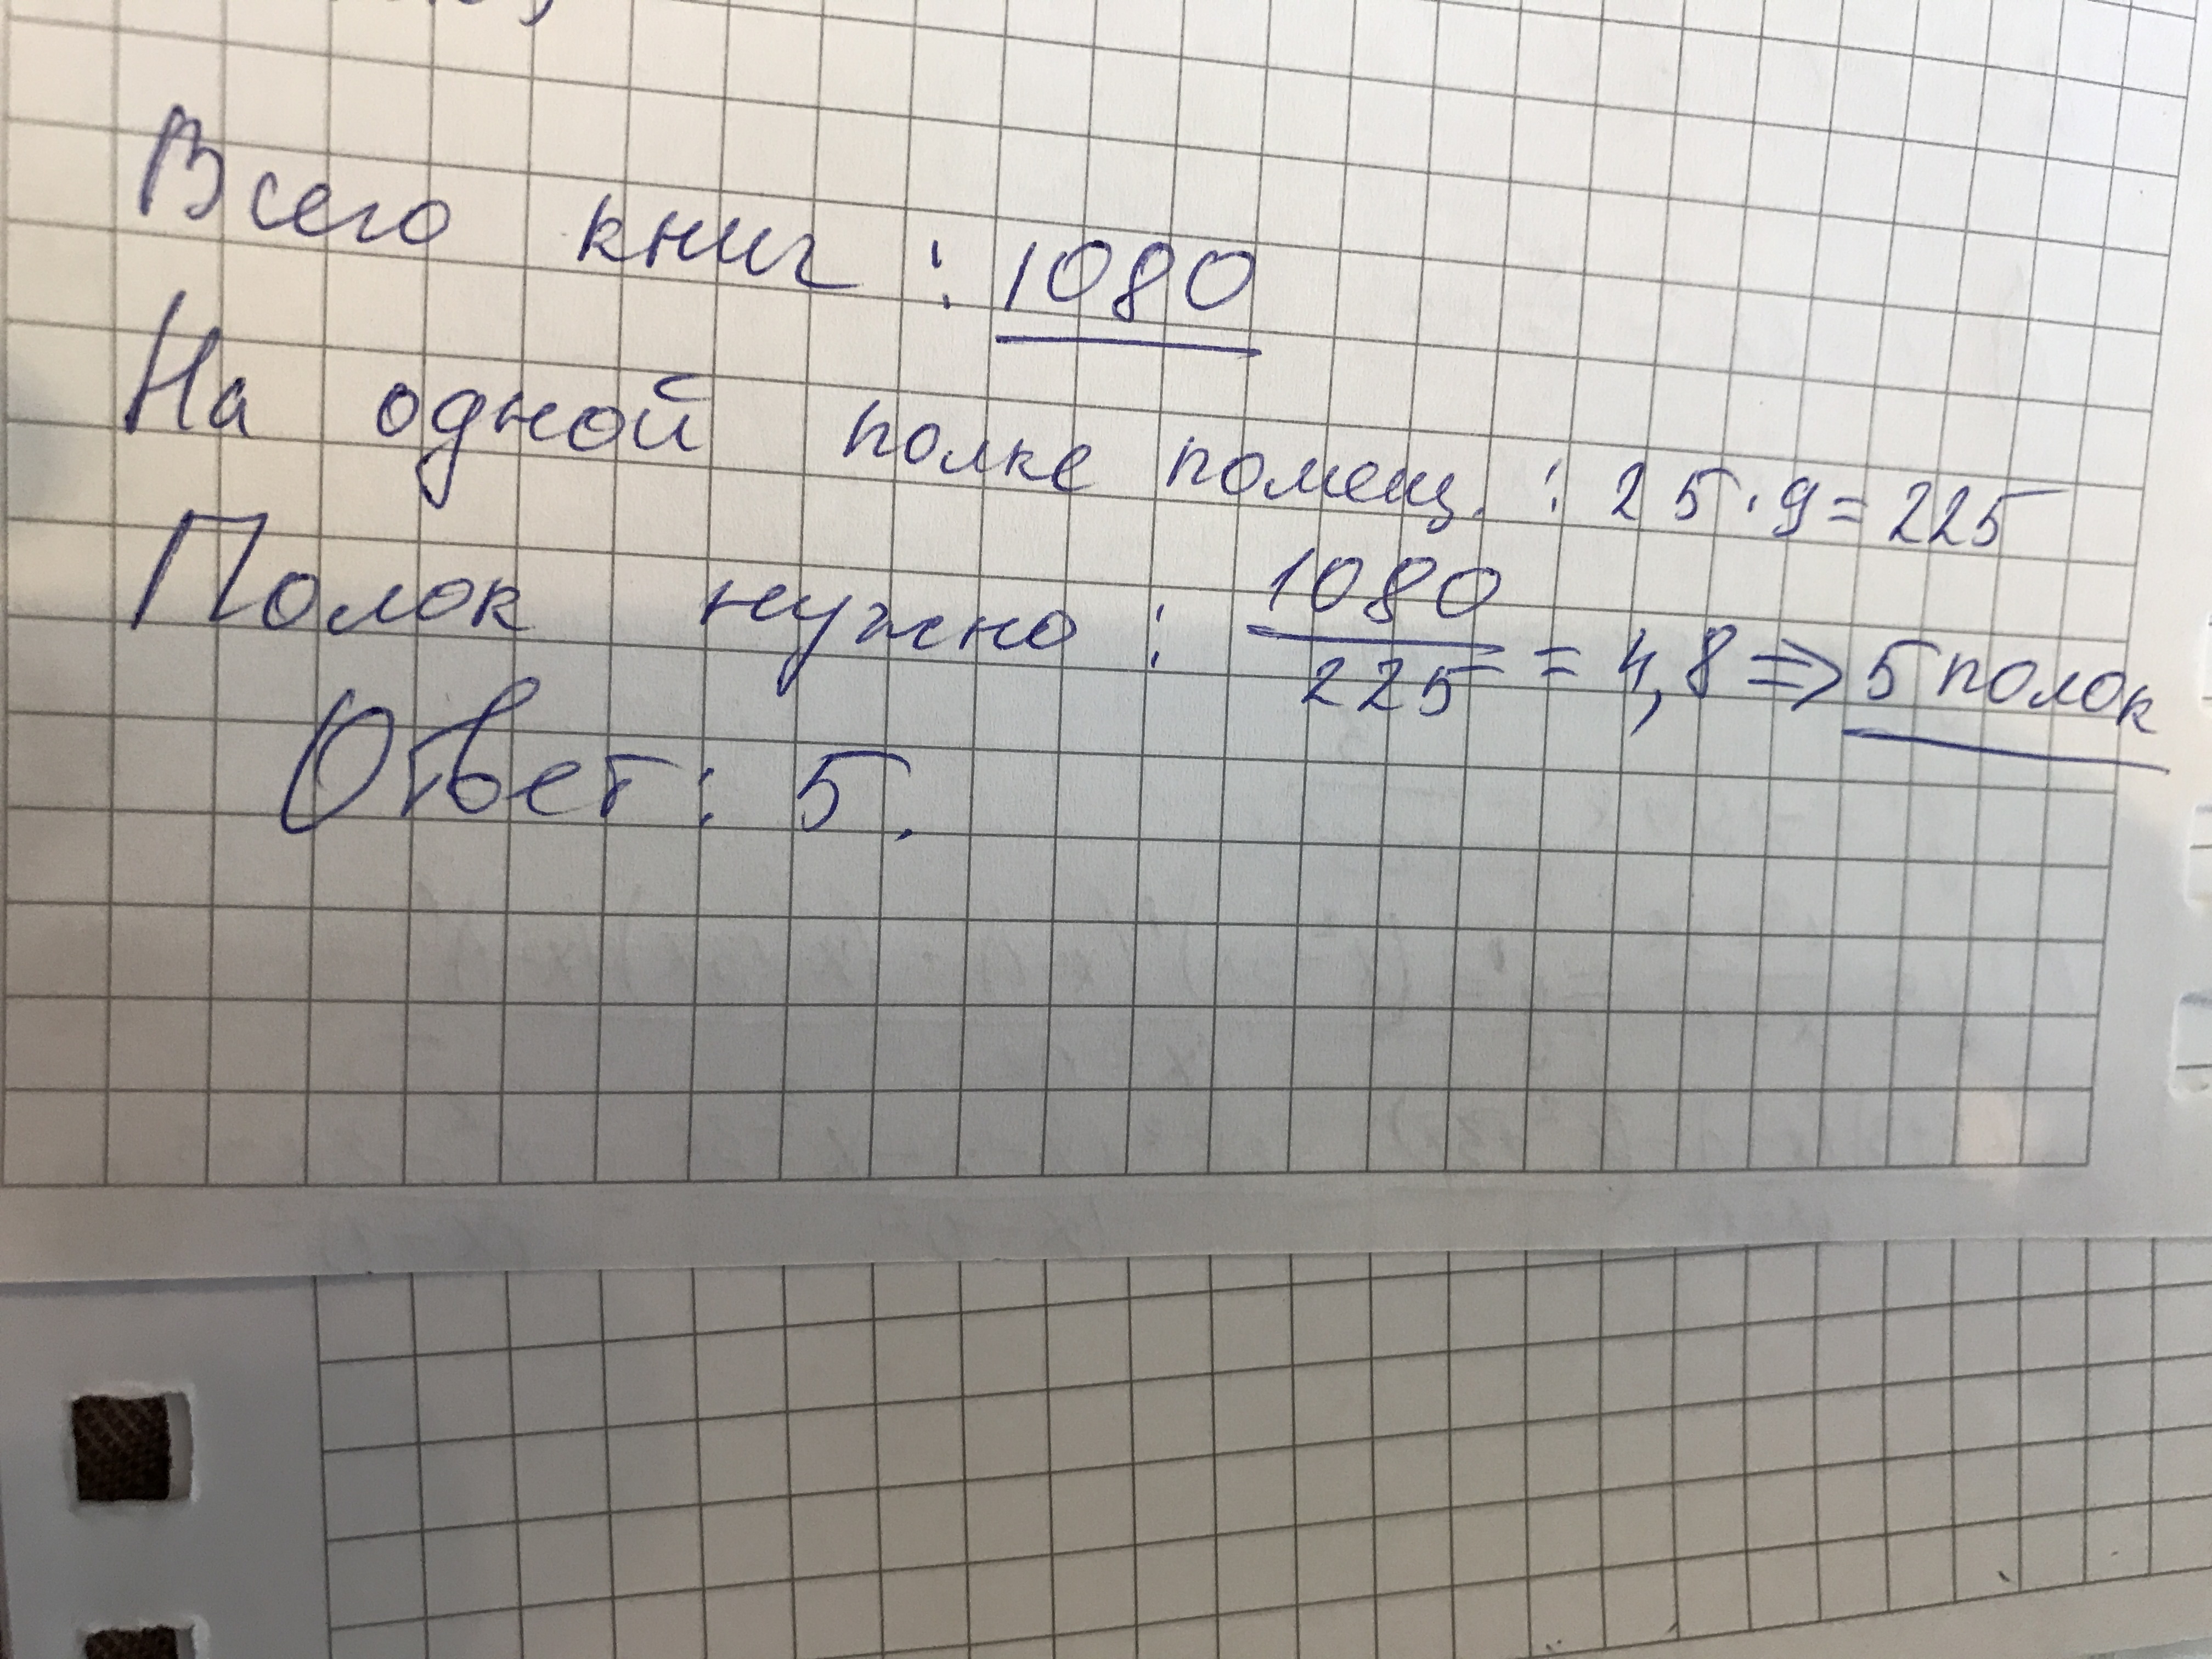 Всего книг : 1080
На одной полке помещ. : 25 · 9 = 225
Полок нужно : 1080/225 = 4,8 => 5 полок
Ответ : 5.